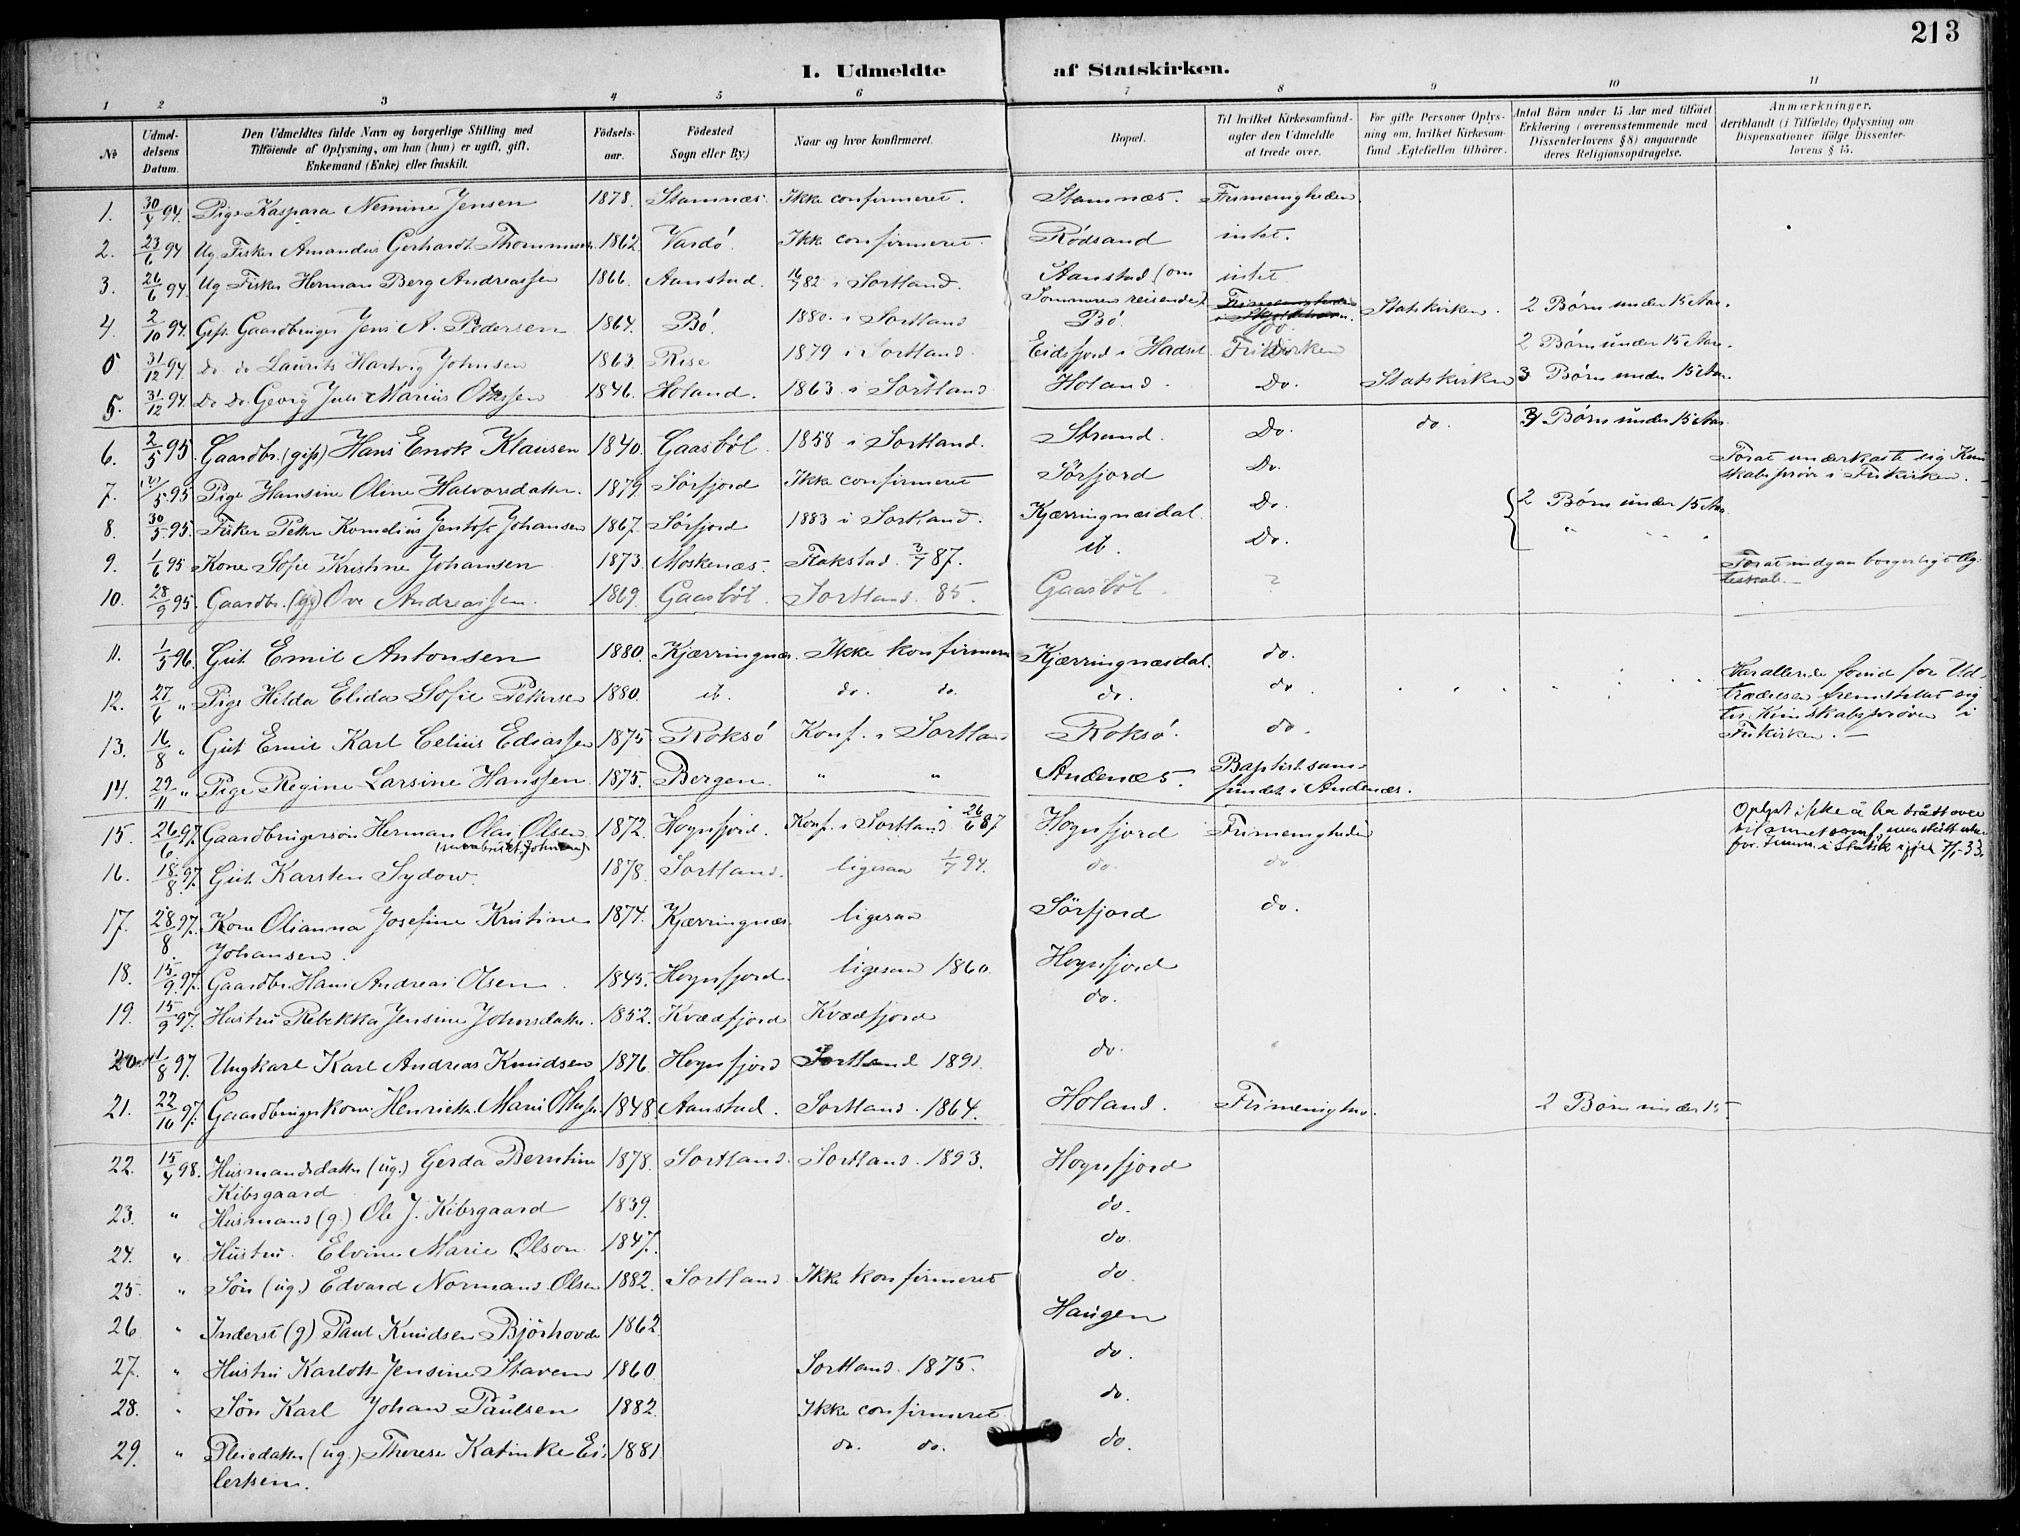 213
I. Udmeldte af Statskirken.
1 2 3 4 5 6 7 8 9 10 11
No
Udmeldelsens Datum.
Den Udmeldtes fulde Navn og borgerlige Stilling med Tilföiende af Oplysning, om han (hun) er ugift, gift, Enkemand (Enke) eller fraskilt.
Födselsaar.
Födested Sogn eller By)
Naar og hvor konfirmeret.
Bopæl.
Til hvilket Kirkesamfund agter den Udmeldte at træde over.
For gifte Personer Oplysning om, hvilket Kirkesamfund Ægtefællen tilhörer.
Antal Börn under 15 Aar med tilföiet Erklæring (overensstemmende med Dissenterlovens § 8) angaaende deres Religionsopdragelse.
Anmærkninger, deriblandt (i Tilfælde) Oplysning om Dispensationer ifölge Dissenterlovens § 15.
1. 30/4 94. Pige Kaspara Nemine Jensen 1878. Stamnæs. Ikke confirmeret. Stamnæs. Frimenigheden
2. 23/6 94 Ug. Fisker Amandus Gerhardt Thommesen 1862 Vardö. Ikk confirmeret. Rödsand intet.
3. 26/6 94. Ug Fisker Herman Berg Andreassen 1866. Aanstad. 16/7 82 i Sortland. Aanstad (om Sommeren reisende) intet
4. 2/10 94. Gift Gaardbruger Jens N. Pedersen 1864. Bö. 1880. i Sortland Bö. do Statskirken. 2 Börn under 15 Aar.
5 31/12 94. do do Laurits Hartvig Johnsen 1863. Rise 1879 i Sortland. Eidsfjord i Hadsel Frikirken 2 Börn under 15 Aar.
5. 31/12 94. Do Do. Georg Juli Marius Ottesen 1846. Holand. 1863. i Sortland Holand. Do. Statskirken 3 Börn under 15 Aar.
6. 2/5 95. Gaardbr. (gift) Hans Enok Klausen 1840. Gaasböl. 1858 i Sortland. Strand. Do. do. Börn under 15 Aar
7. 5 95 Pige Hansine Oline Halvorsdatter. 1879. Sörfjord Ikke confirmeret Sörfjord Do. Forat underkaste sig Kundskabspröve i Frikirken.
8. 30/5 95. Fisker Petter Kornelius Jentoft Johansen 1867. Sörfjord 1883 i Sortland. Kjærringnæsdal. Do. 2 Börn under 15 Aar
9. 1/6 95 Kone Sofie Kristine Johansen 1873. Moskenæs. Flakstad. 3/7 87. ib. Do. "
10. 28/9 95. Gaardbr. (ug) Ove Andreassen. 1869. Gaasböl. Sortland. 85. Gaasböl. ? Forat indgaa borgerligt Ægteskab.
11. 1/5 96. Gut Emil Antonsen 1880. Kjærringnæs. Ikke konfirmeret Kjærringnæsdal. do.
12. 27/6 " Pige Hilda Elida Sofie Pettersen 1880. ib. do. do. do. do
13. 16/8 " Gut Emil Karl Celius Ediassen 1875 Roksö Konf. i Sortland Roksö. do.
14. 22/11 " Pige Regine Larsine Hanssen 1875. Bergen. " " Andenæs. Baptistsamfundet i Andenæs.
15. 26/6 97. Gaardbrugersön Herman Olai Olsen 1872. Hognfjord. Konf. i Sortland 26/6 87 Hognfjord Frimenigheden
16. 18/8 97. Gut Karsten Sydow. 1878. Sortland. ligesaa 1/7 94. do. do.
17. 28/8 97. Kone Olianna Josefine Kristine Johansen. 1874. Kjærringnæs ligesaa Sörfjord do.
18. 15/9 97. Gaardbr. Hans Andreas Olsen. 1845. Hognfjord. ligesaa 1860. Hognfjord
19. 15/9 97. Hustru Rebekka Jensine Johnsdatter. 1852. Kvædfjord Kvædfjord do.
20 1/8 97. Ungkarl Karl Andreas Knudsen 1876. Hognfjord Sortland 1891. do.
21. 22/10 97. Gaardbrugerkone Henriette Marie Ottesen 1848. Aanstad. Sortland. 1864. Holand. Frimenighed. 2 Börn under 15
22. 15/4 98. Husmandsdatter (ug.) Gerda Berntine Kibsgaard 1878. Sortland. Sortland. 1893. Hognfjord
23. " Husmand (g.) Ole J. Kibsgaard 1839. do.
24. " Hustru. Elvine Marie Olson 1847. do.
25. " Sön (ug.) Edvard Normand Olsen 1882. Sortland Ikke konfirmeret do.
26 " Inderst (g) Paul Knudsen Björhovde 1862. Haugen
27. " Hustru Karlotte Jensine Stavem 1860. Sortland. 1875. do.
28. " Sön Karl Johan Paulsen 1882. Ikke confirmeret. do.
29. " Pleiedatter (ug.) Therese Katinka Eilertsen. 1881. do. do. do.